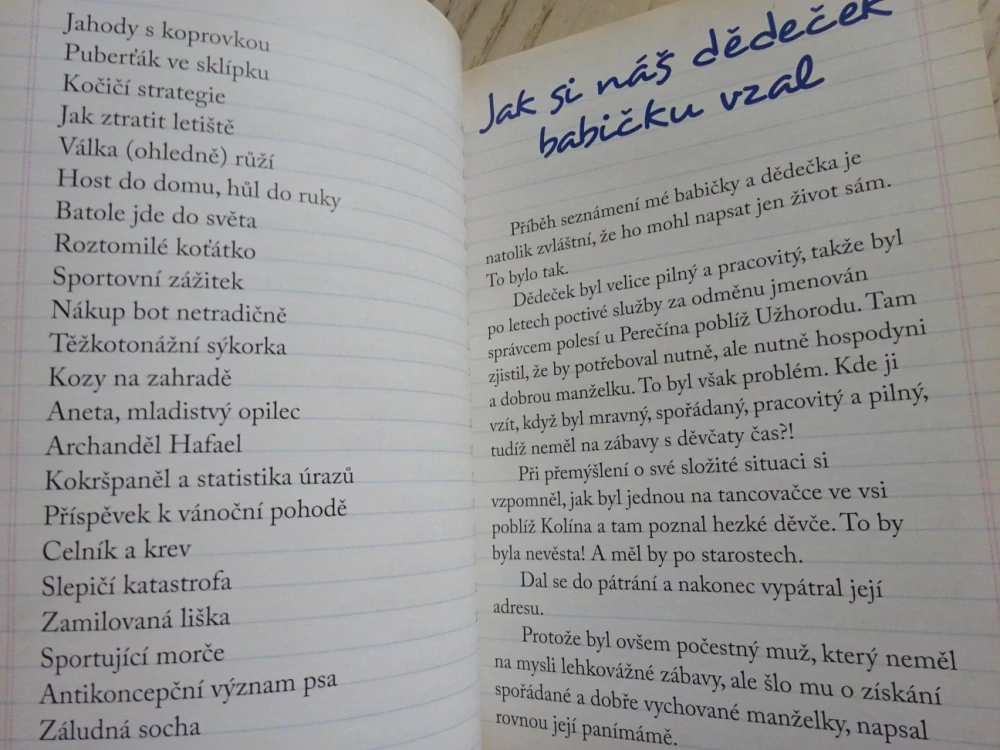 Jahody s koprovkou
Puberťák ve sklípku
Kočičí strategie
Jak ztratit letiště
Válka (ohledně) růží
Host do domu, hůl do ruky
Batole jde do světa
Roztomilé koťátko
Sportovní zážitek
Nákup bot netradičně
Těžkotonážní sýkorka
Kozy na zahradě
Aneta, mladistvý opilec
Archanděl Hafael
Kokršpaněl a statistika úrazů
Příspěvek k vánoční pohodě
Celník a krev
Slepičí katastrofa
Zamilovaná liška
Sportující morče
Antikoncepční význam psa
Záludná socha
Jak si náš dědeček
babičku vzal
Příběh seznámení mé babičky a dědečka je
natolik zvláštní, že ho mohl napsat jen život sám.
To bylo tak.
Dědeček byl velice pilný a pracovitý, takže byl
po letech poctivé služby za odměnu jmenován
správcem polesí u Perečína poblíž Užhorodu. Tam
zjistil, že by potřeboval nutně, ale nutně hospodyni
a dobrou manželku. To byl však problém. Kde ji
vzít, když byl mravný, spořádaný, pracovitý a pilný,
tudíž neměl na zábavy s děvčaty čas?!
Při přemýšlení o své složité situaci si
vzpomněl, jak byl jednou na tancovačce ve vsi
poblíž Kolína a tam poznal hezké děvče. To by
byla nevěsta! A měl by po starostech.
Dal se do pátrání a nakonec vypátral její
adresu.
Protože byl ovšem počestný muž, který neměl
na mysli lehkovážné zábavy, ale šlo mu o získání
spořádané a dobře vychované manželky, napsal
rovnou její panímámě.